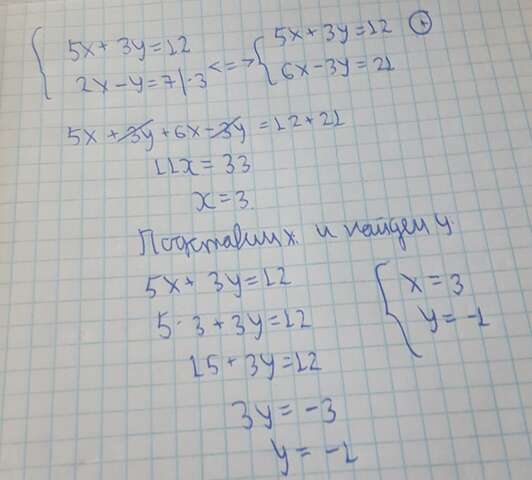 { 5x + 3y = 12 <=> { 5x + 3y = 12 ⊕
2x - y = 7 | ·3 6x - 3y = 21
5x + 3y + 6x - 3y = 12 + 21
11x = 33
x = 3.
Подставим x и найдем y.
5x + 3y = 12
5 · 3 + 3y = 12
15 + 3y = 12
3y = -3
y = -1
{ x = 3
y = -1